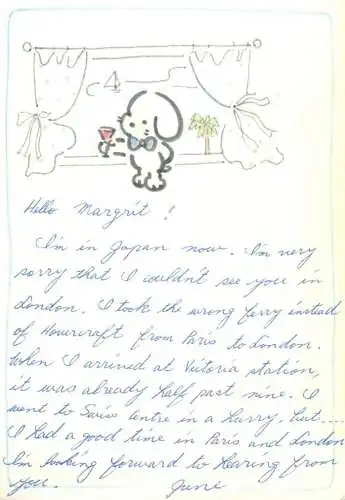 Hello Margrit !
I'm in Japan now. I'm very
sorry that I couldn't see you in
London. I took the wrong ferry instead
of Hovercraft from Paris to London.
When I arrived at Victoria station,
it was already half past nine. I
went to Swiss Centre in a hurry, but....
I had a good time in Paris and London
I'm looking forward to hearing from
you. June